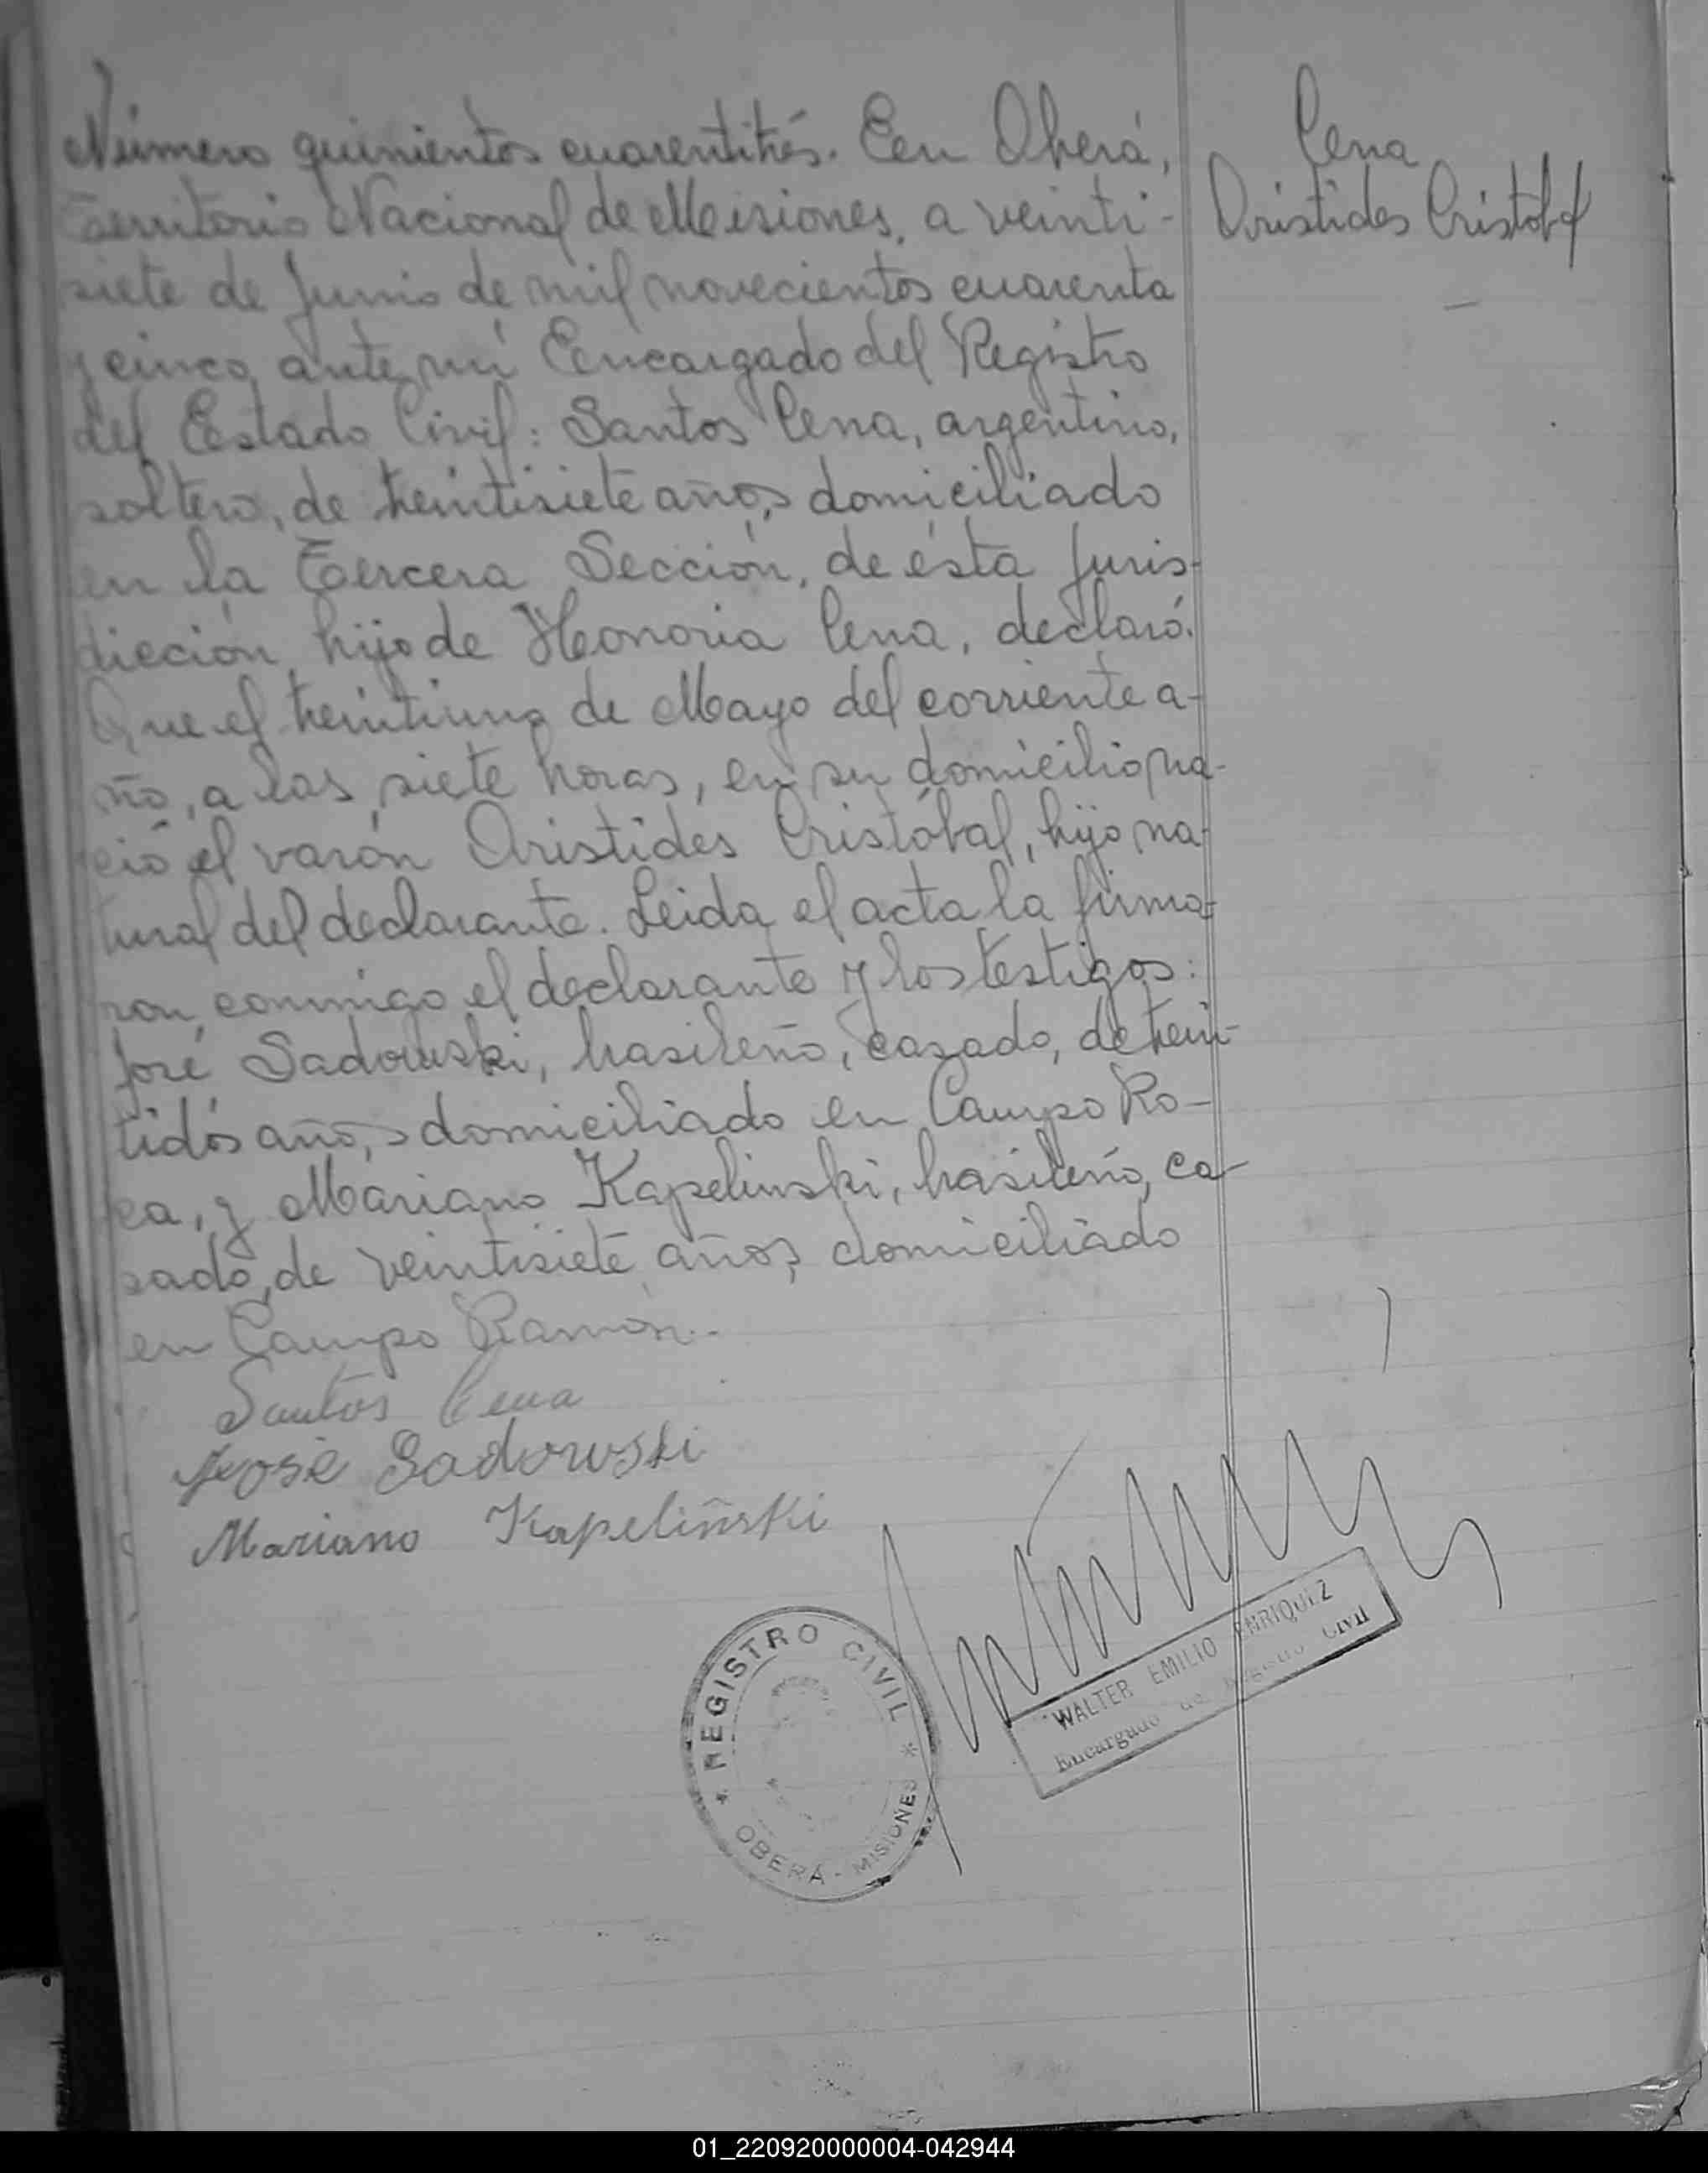 Número quinientos cuarentitrés. En Oberá,
Territorio Nacional de Misiones, a veinti-
siete de Junio de mil novecientos cuarenta
y cinco, ante mí Encargado del Registro
del Estado Civil: Santos Cena, argentino,
soltero, de treintisiete años, domiciliado
en la Tercera Sección, de ésta Juris-
dicción, hijo de Honoria Cena, declaró:
Que el treintiuno de Mayo del corriente a-
ño, a las siete horas, en su domicilio na-
ció el varón Aristides Cristóbal, hijo na-
tural del declarante. Leida el acta la firma-
ron conmigo el declarante y los testigos:
José Sadowski, brasileño, casado, de trein-
tidós años, domiciliado en Campo Ro-
ca, y Mariano Kapelinski, brasileño, ca-
sado, de veintisiete años, domiciliado
en Campo Ramón.-
Santos Cena
José Sadowski
Mariano Kapeliñski
Cena
Aristides Cristobal
REGISTRO CIVIL
OBERÁ - MISIONES
WALTER EMILIO ENRIQUEZ
Encargado del Registro Civil
01_220920000004-042944